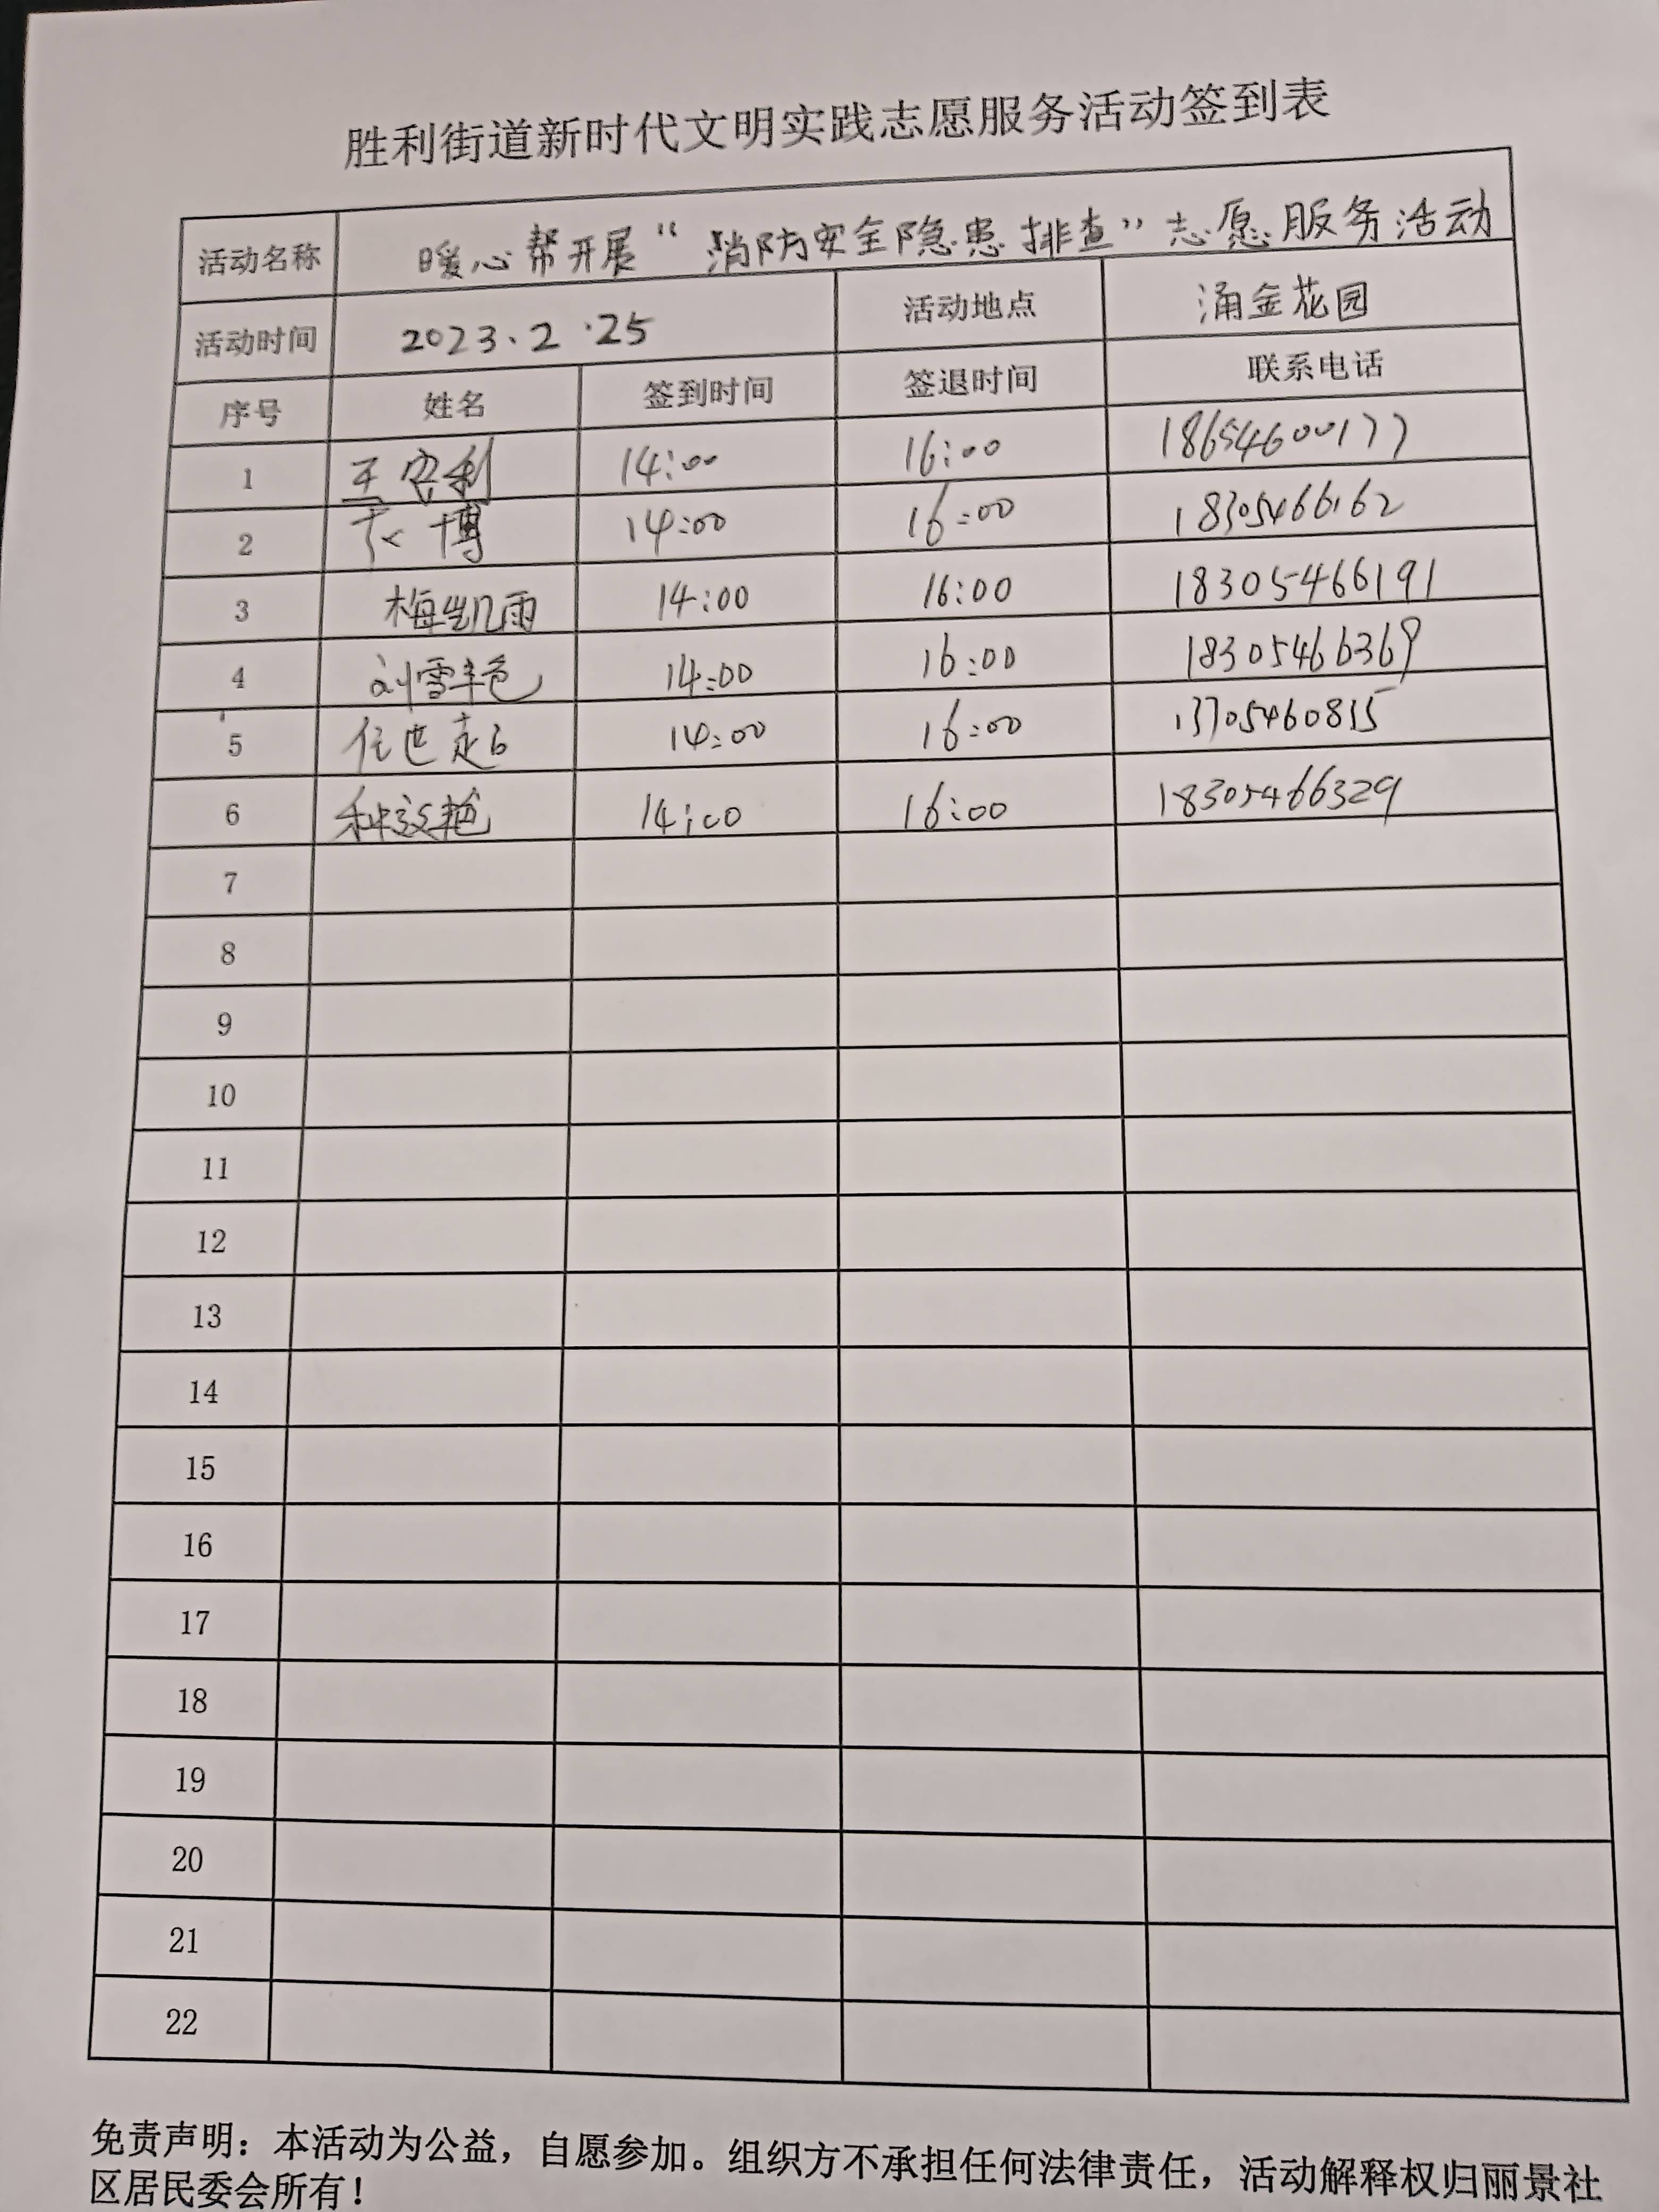 胜利街道新时代文明实践志愿服务活动签到表
活动名称 暖心帮开展“消防安全隐患排查”志愿服务活动
活动时间 2023.2.25 活动地点 涌金花园
序号 姓名 签到时间 签退时间 联系电话
1 王安利 14:00 16:00 18654600177
2 博 14:00 16:00 18305466162
3 梅凯雨 14:00 16:00 18305466191
4 刘雪艳 14:00 16:00 18305466369
5 任 14:00 16:00 13705460815
6 种效艳 14:00 16:00 18305466329
7
8
9
10
11
12
13
14
15
16
17
18
19
20
21
22
免责声明：本活动为公益，自愿参加。组织方不承担任何法律责任，活动解释权归丽景社
区居民委会所有！